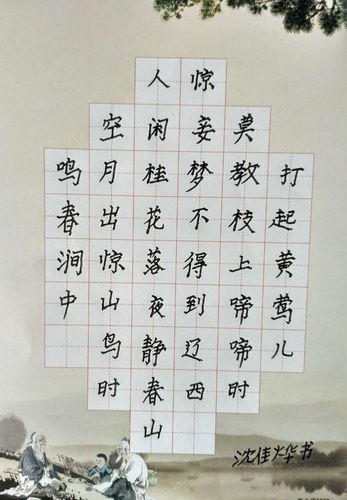 打起黄莺儿
莫教枝上啼啼时
惊妾梦不得到辽西
人闲桂花落夜静春山
空月出惊山鸟时
鸣春涧中
沈佳烨书